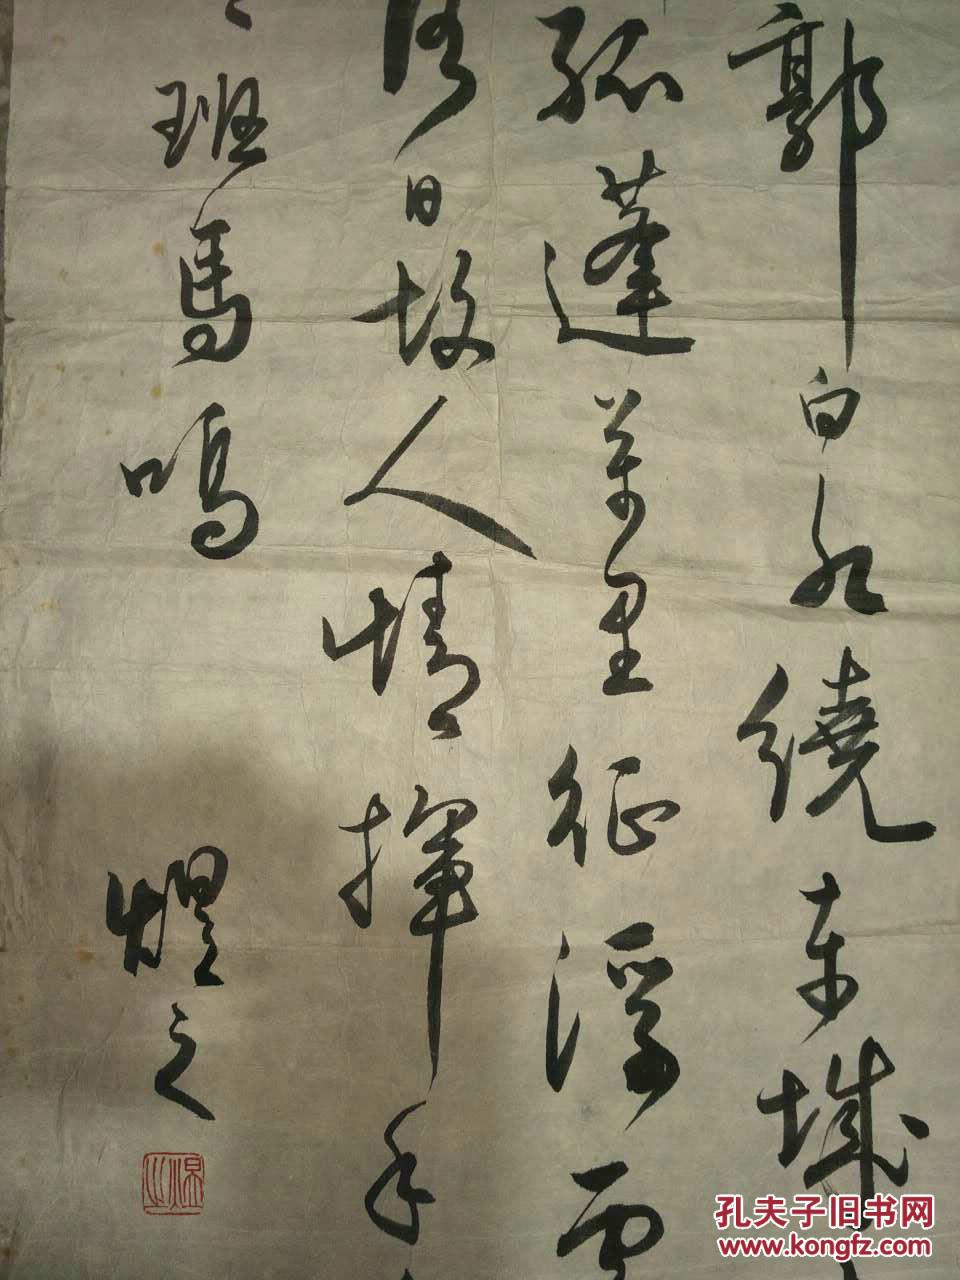 郭白水繞東城
孤蓬萬里征浮雲
落日故人情揮手
班馬鳴
之
孔夫子旧书网
www.kongfz.com